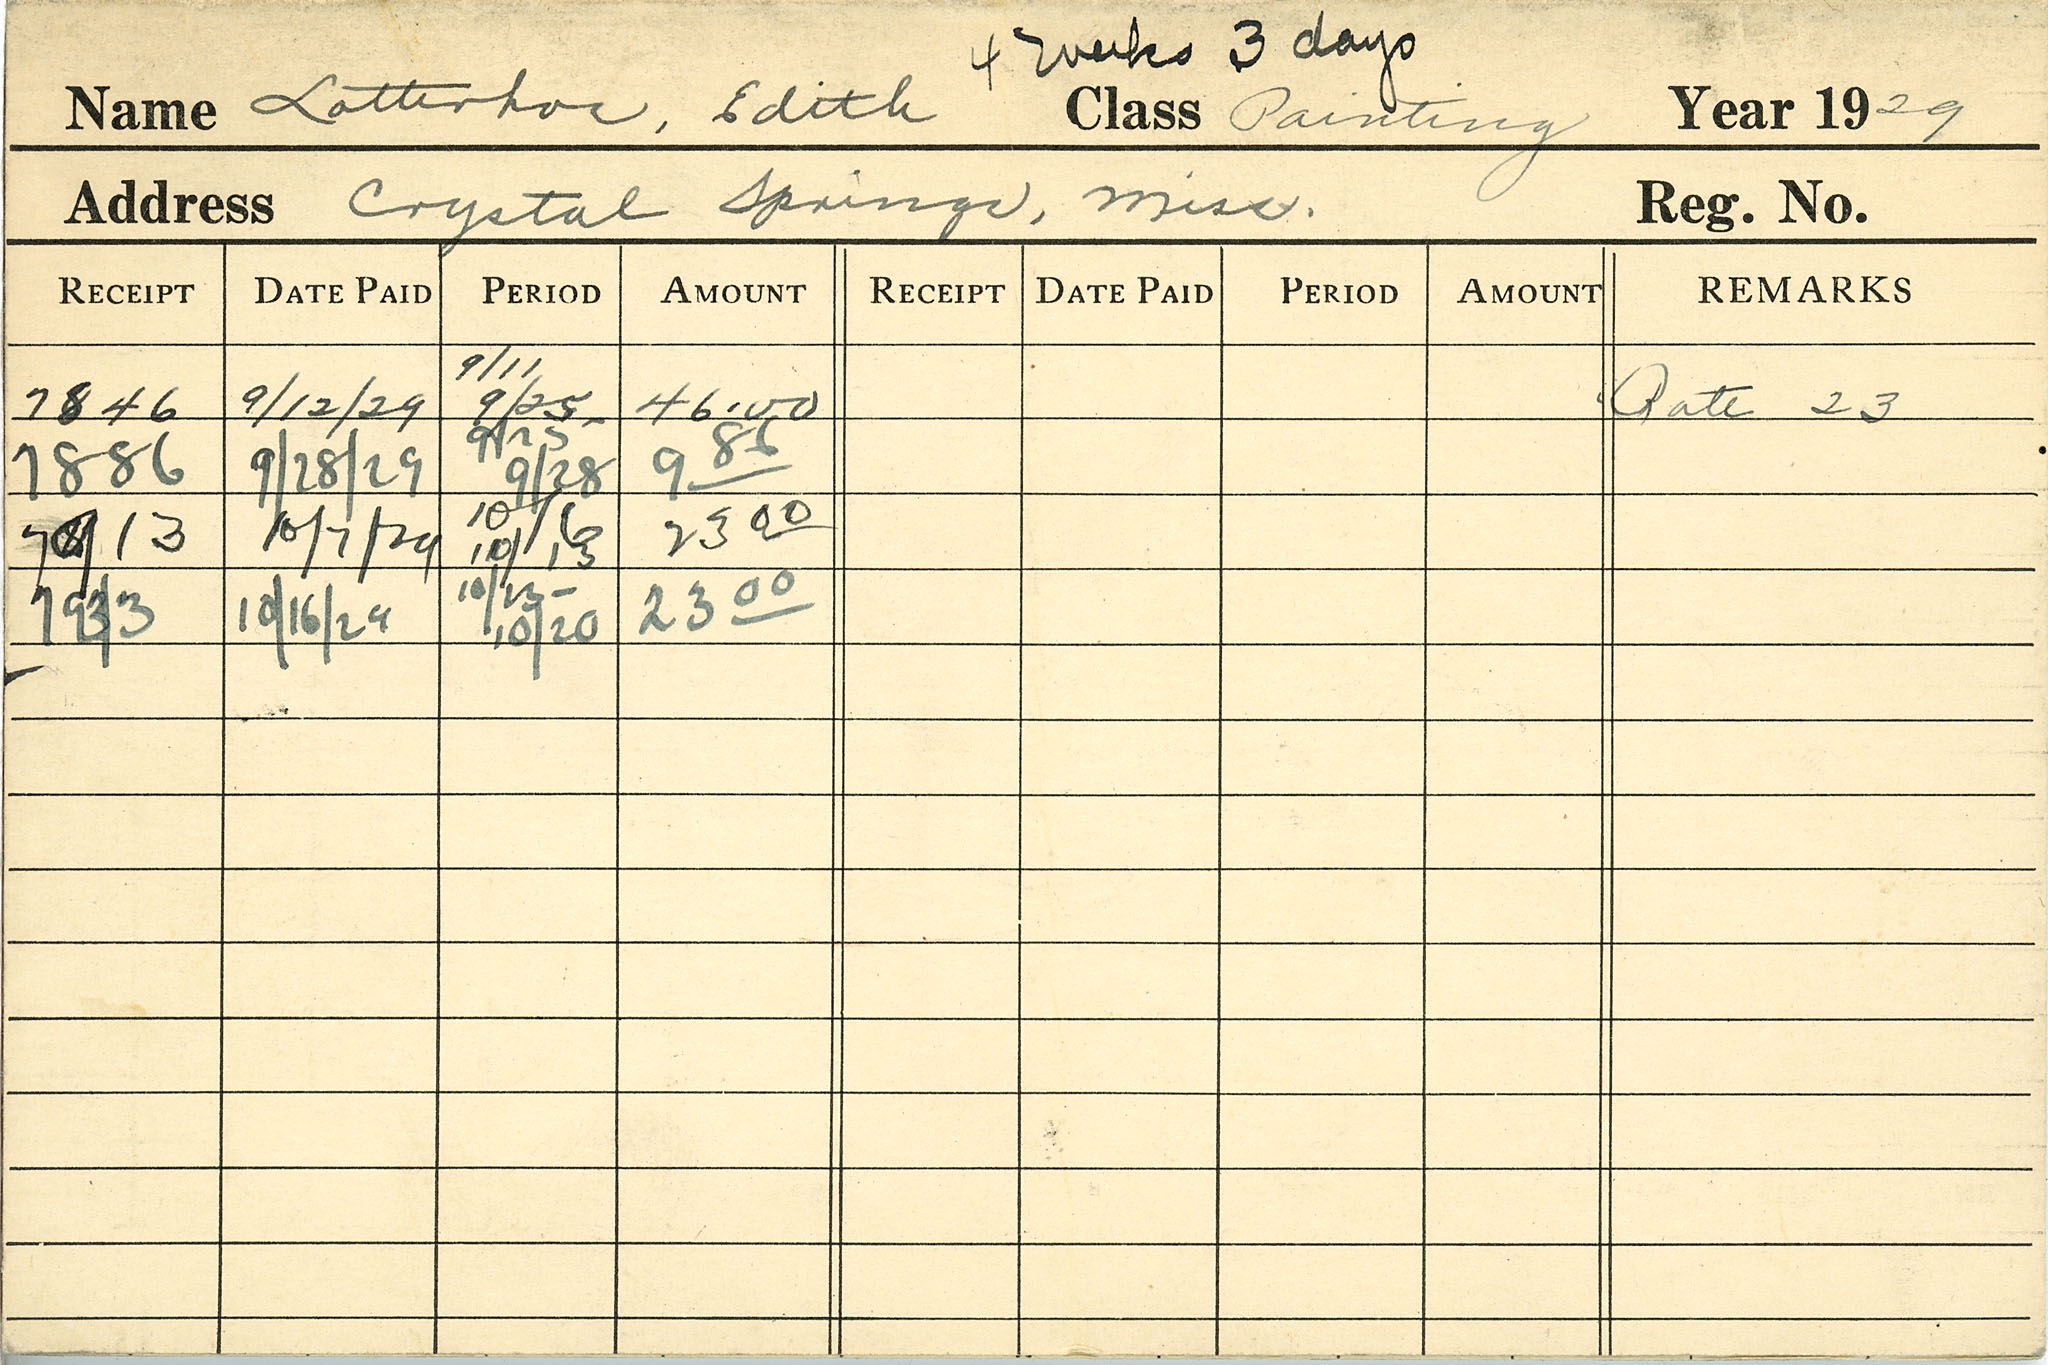 4 weeks 3 days
Name Lotterhos, Edith Class Painting Year 1929
Address Crystal Springs, Miss. Reg. No.
RECEIPT DATE PAID PERIOD AMOUNT RECEIPT DATE PAID PERIOD AMOUNT REMARKS
9/11
7846 9/12/29 9/25 46.00 Rate 23
9/25-
7886 9/28/29 9/28 9 86
10/6
7913 10/7/29 10/13 23 00
10/13-
7933 10/16/29 10/20 23 00